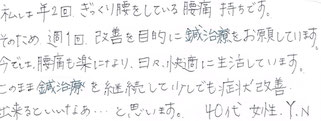 私は年2回ぎっくり腰をしている腰痛持ちです。
そのため週1回、改善を目的に鍼治療をお願しています。
今では、腰痛も楽になり、日々、快適に生活しています。
このまま鍼治療を継続して少しでも症状改善
出来るといいなあ…と思います。 40代 女性 Y.N